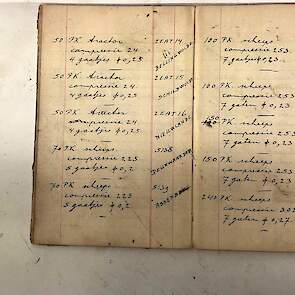 50 PK tractor 2EAT 14
compressie 24
4 gaatjes φ 0,25
50 PK tractor 2EAT 15
compressie 24
4 gaatjes φ 0,25
50 PK tractor 2EAT 16
compressie 24
4 gaatjes φ 0,25
70 PK scheeps 5138
compressie 223
5 gaatjes φ 0,2
70 PK scheeps 5139
compressie 223
5 gaatjes φ 0,2
100 PK scheeps
compressie 253
7 gaten φ 0,23
100 PK scheeps
compressie 253
7 gaten φ 0,23
150 PK scheeps
compressie 253
7 gaten φ 0,23
150 PK scheeps
compressie 253
7 gaten φ 0,23
240 PK scheeps
compressie 302
7 gaten φ 0,27